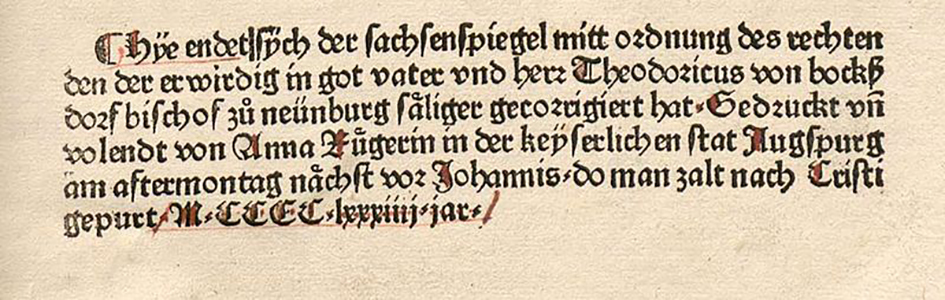 ¶ Hÿe endet sÿch der sachsenspiegel mitt ordnung des rechten
den der erwirdig in got vater vnd herr Theodoricus von bockß
dorf bischof zů neünburg säliger gecorrigiert hat · Gedruckt vn̄
volendt von Anna Rügerin in der keÿserlichen stat Augspurg
am aftermontag nächst vor Johannis · do man zalt nach Cristi
gepurt / M · CCCC · lxxxiiij · jar · /